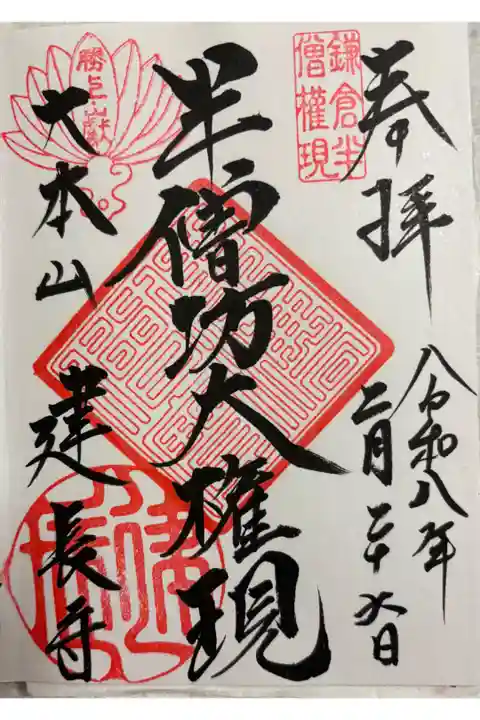 奉拝
令和八年
二月二十六日
鎌倉半
僧權現
半僧坊大権現
勝上嶽
大本山 建長寺